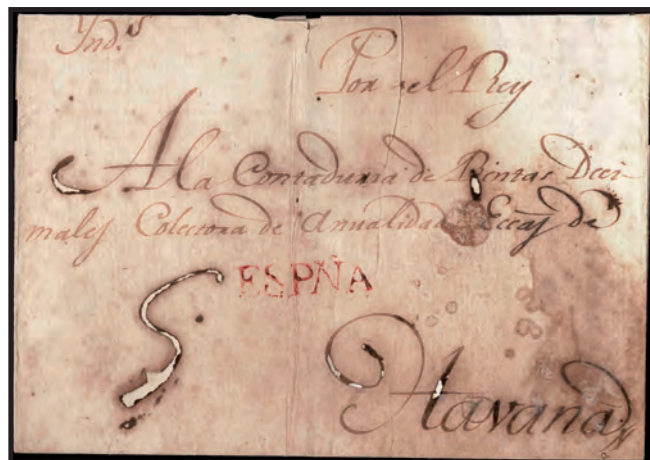 Ynd.s
Por el Rey
A la Contaduria de Rentas Deci-
males Colectora de Anualidad Eccas de
ESPÑA
Havana